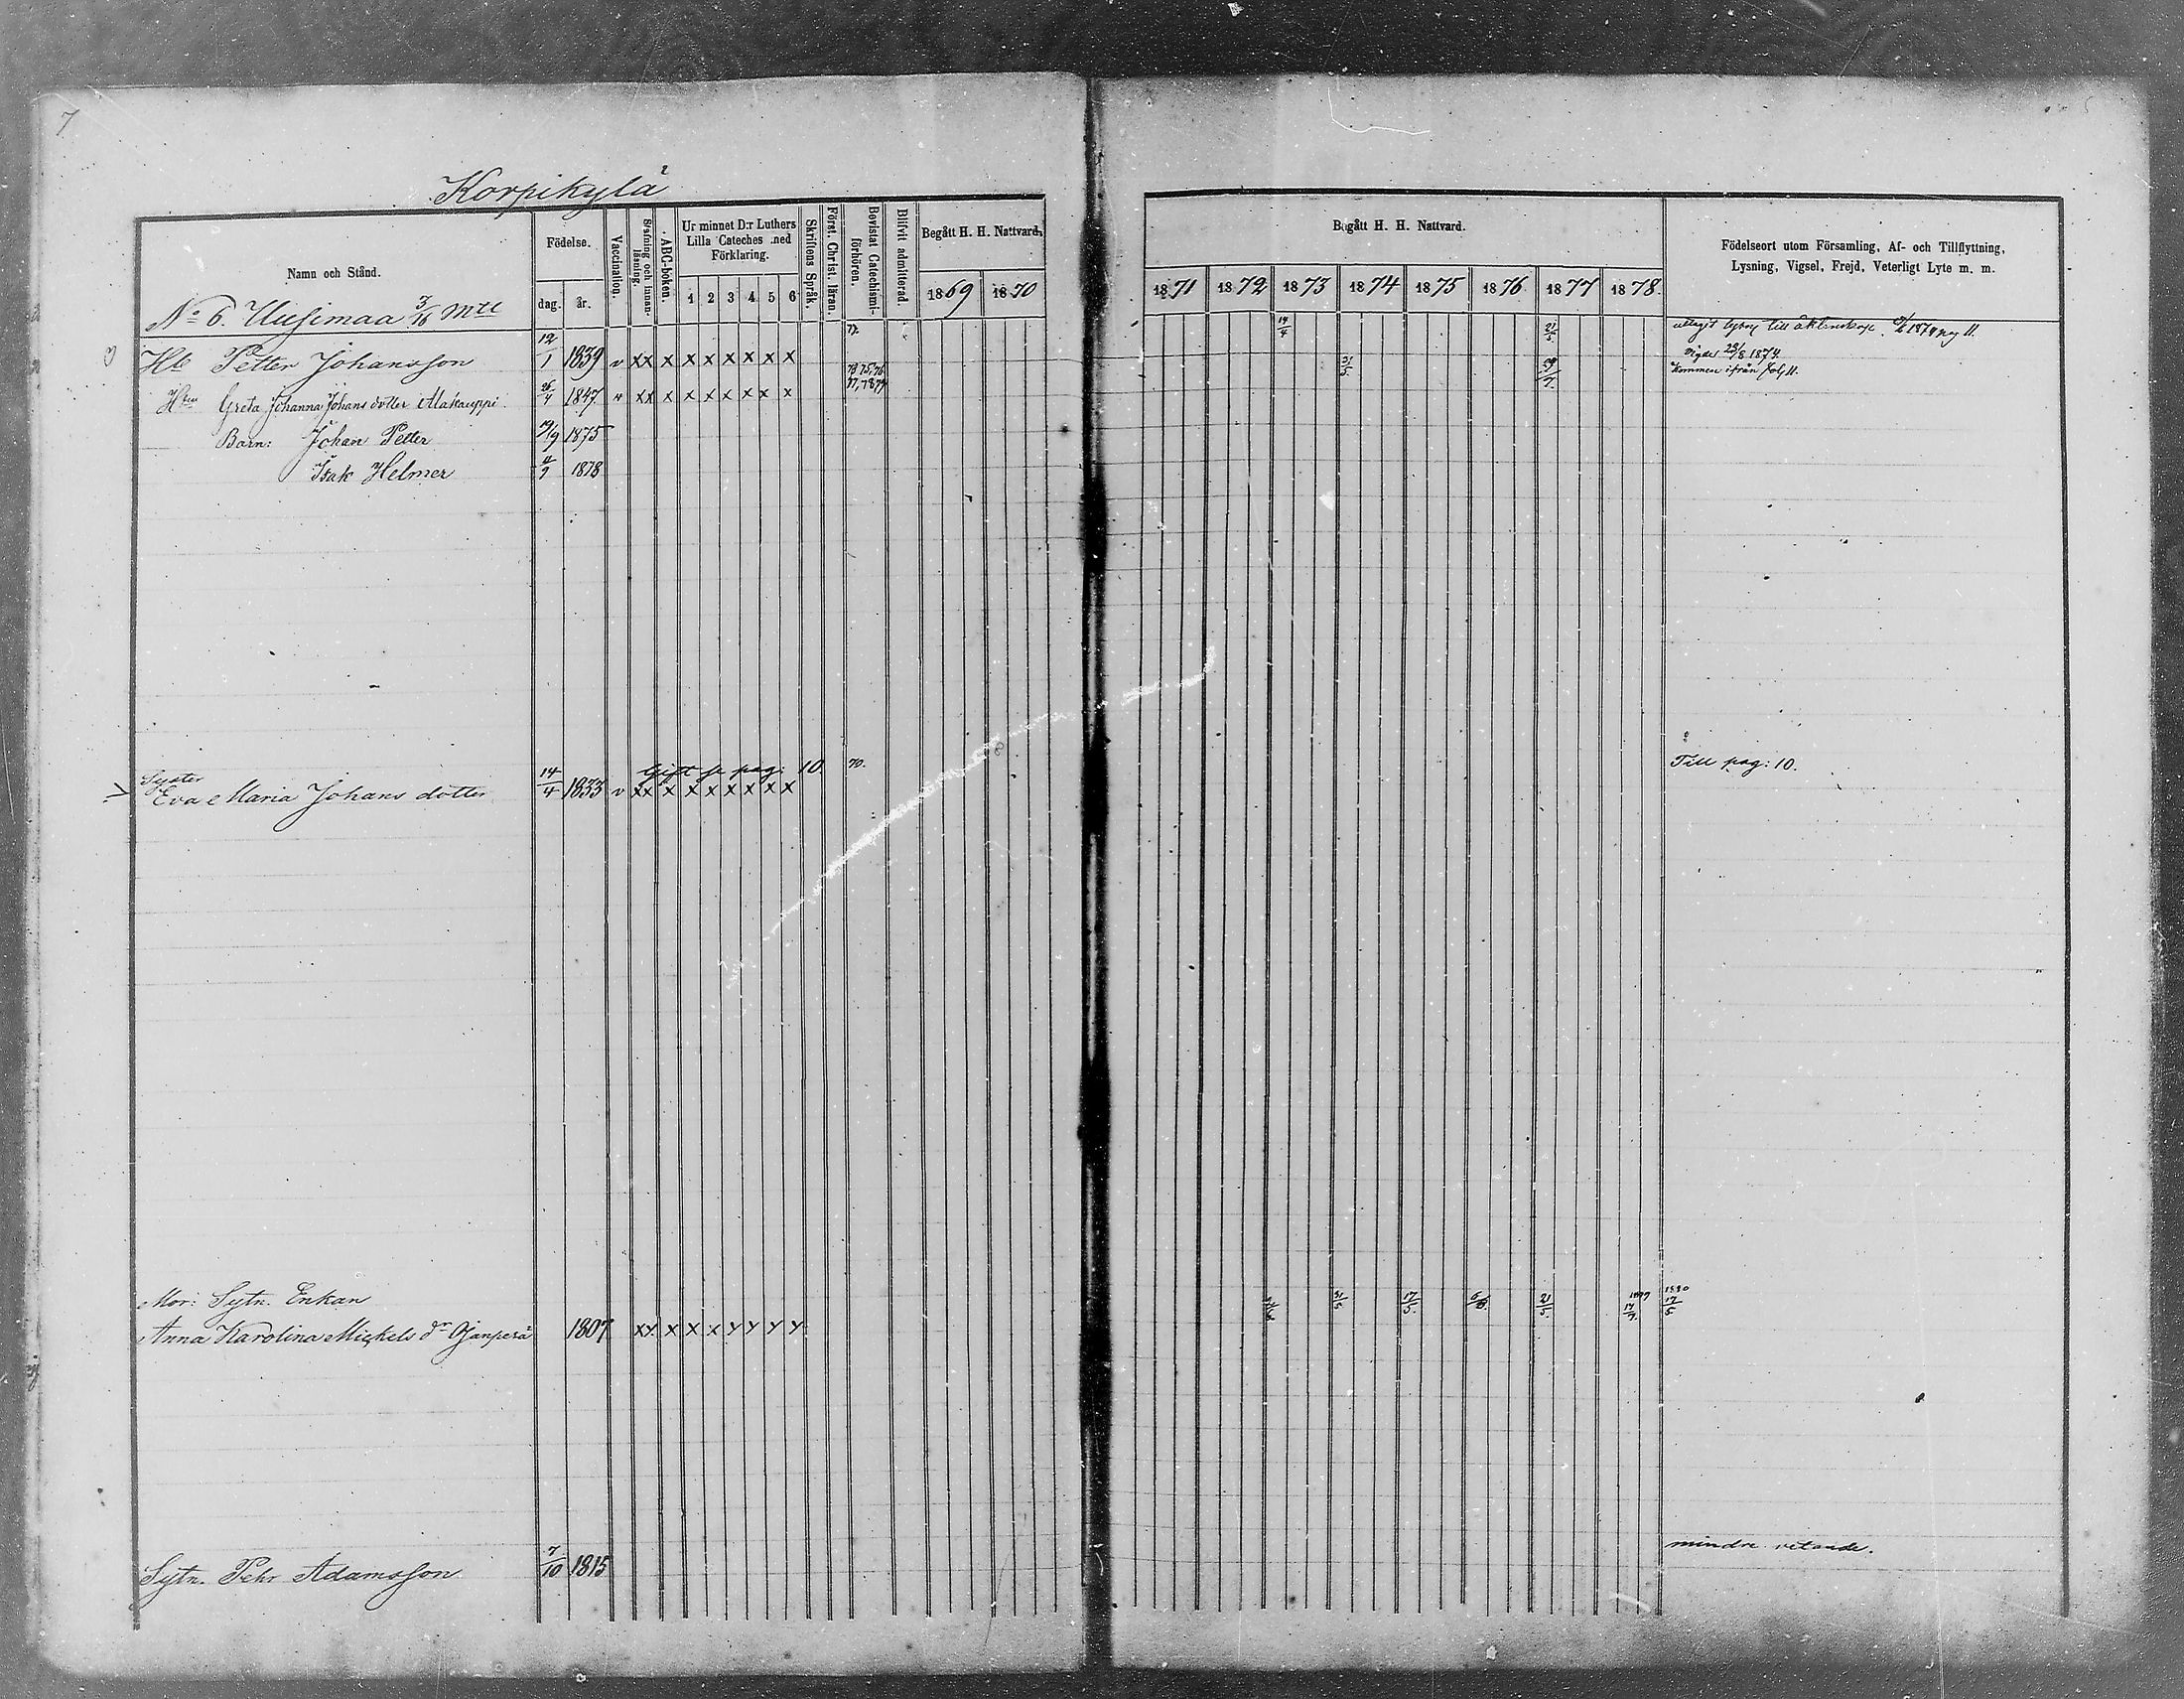 7
Korpikylä
Namn och Stånd.
Födelse.
dag.
år.
Vaccination.
Stafning och innan-läsning.
ABC-boken.
Ur minnet D:r Luthers
Lilla Cateches med
Förklaring.
1 2 3 4 5 6
Skriftens Språk.
Först. Christ. läran.
Bevistat Catechismi-förhören.
Blifvit admitterad.
Begått H. H. Nattvard.
1869 1870
Begått H. H. Nattvard.
1871 1872 1873 1874 1875 1876 1877 1878
Födelseort utom Församling, Af- och Tillflyttning,
Lysning, Vigsel, Frejd, Veterligt Lyte m. m.
No 6. Uusimaa 3/16 mtl
Hb Petter Johansson 12/1 1839 v xx x x x x x x x 77. 14/4 21/5 till äktenskap 1874 pag 11.
Vigde 23/8 1874.
Hem Greta Johanna Johans dotter Alakauppi 26/4 1847 v xx x x x x x x x 31/5 29/7 Kommen ifrån fol, 11.
Barn: Johan Petter 19/9 1875
Isak Helmer 11/9 1878
Syster Gift se pag: 10 70. Till pag: 10.
Eva Maria Johans dotter 14/4 1833 v xx x x x x x x x
Mor: Sytn. Enkan 31/5 17/5 21/5 1879 1880 17/5
Anna Karolina Mickels dr Ojanperä 1807 xx x x x y y y y
Sytn. Pehr Adamsson 7/10 1815 mindre vetande.